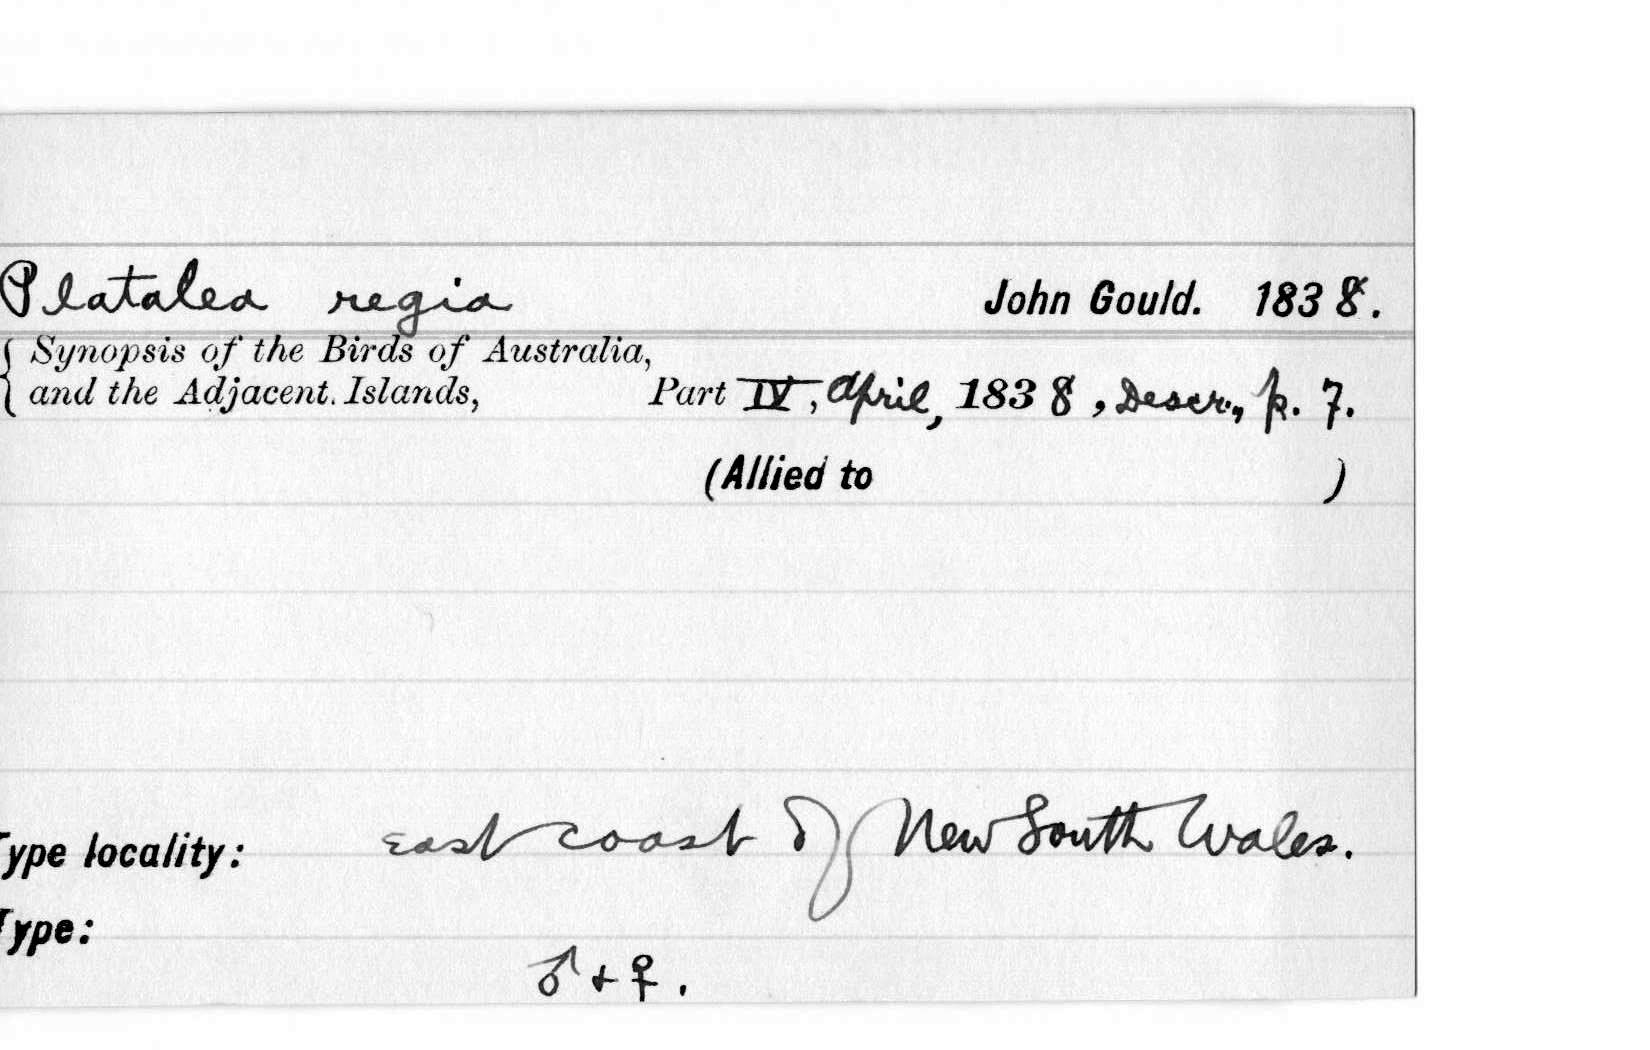 Platalea regia John Gould. 1838.
Synopsis of the Birds of Australia,
and the Adjacent Islands, Part IV, April, 1838, Descr., p. 7.
(Allied to )
Type locality: East coast of New South Wales.
Type:
♂ + ♀.